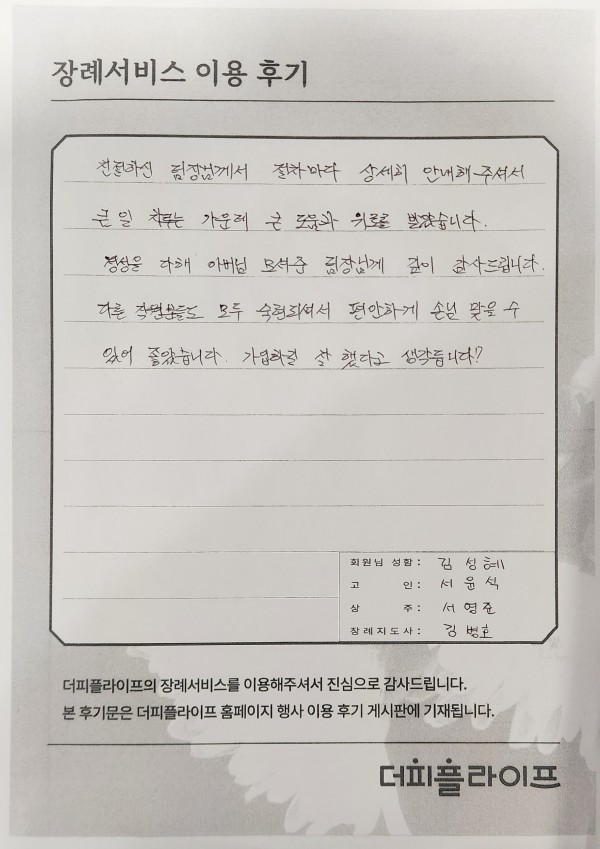 장례서비스 이용 후기
친절하신 팀장님께서 절차마다 상세히 안내해 주셔서
큰일 치루는 가운데 큰 도움과 위로를 받았습니다.
정성을 다해 아버님 모셔준 팀장님께 깊이 감사드립니다.
다른 직원분들도 모두 숙련되셔서 편안하게 손님 맞을 수
있어 좋았습니다. 가입하길 잘 했다고 생각듭니다?
회원님 성함 : 김성혜
고 인 : 서윤석
상 주 : 서영준
장례지도사 : 김병호
더피플라이프의 장례서비스를 이용해주셔서 진심으로 감사드립니다.
본 후기문은 더피플라이프 홈페이지 행사 이용 후기 게시판에 기재됩니다.
더피플라이프